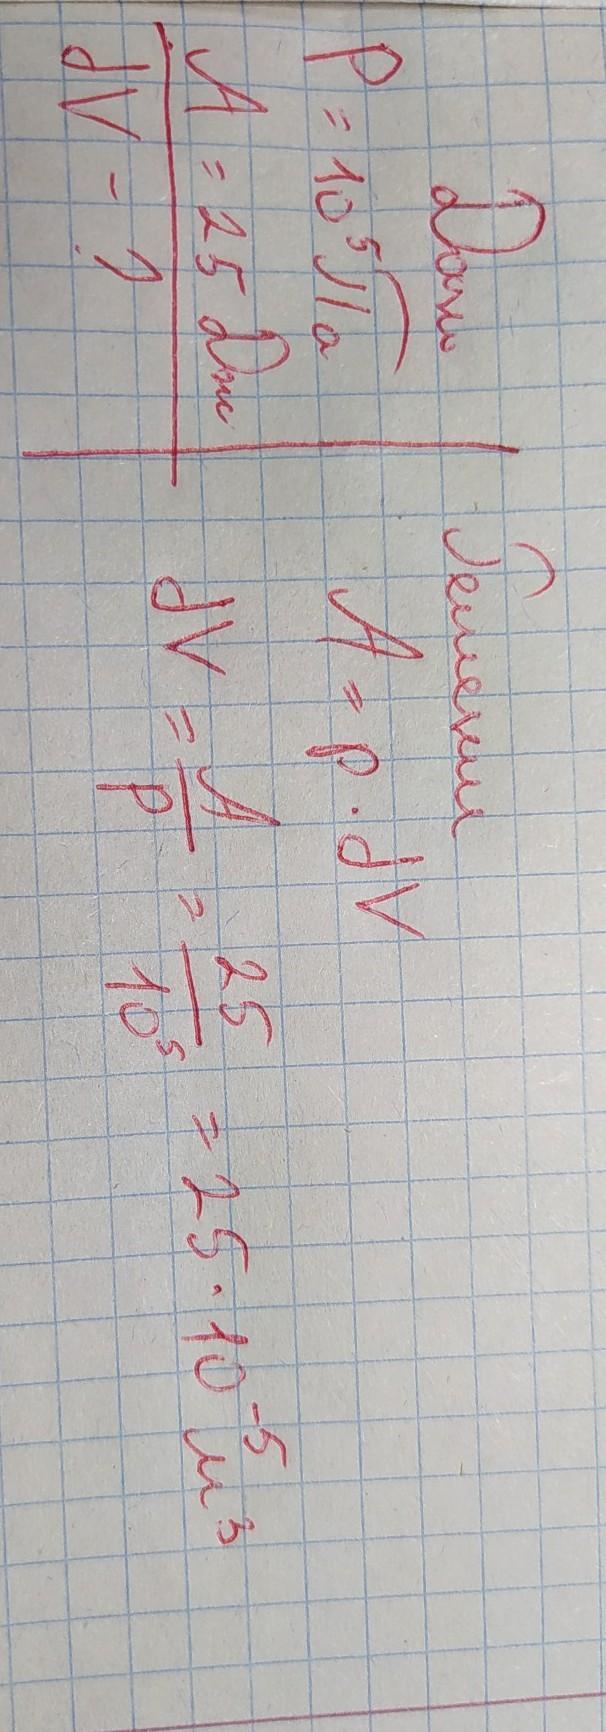 Дано
P = 10⁵ Па
A = 25 Дж
dV - ?
Решение
A = p · dV
dV = A/p = 25/10⁵ = 25 · 10⁻⁵ м³